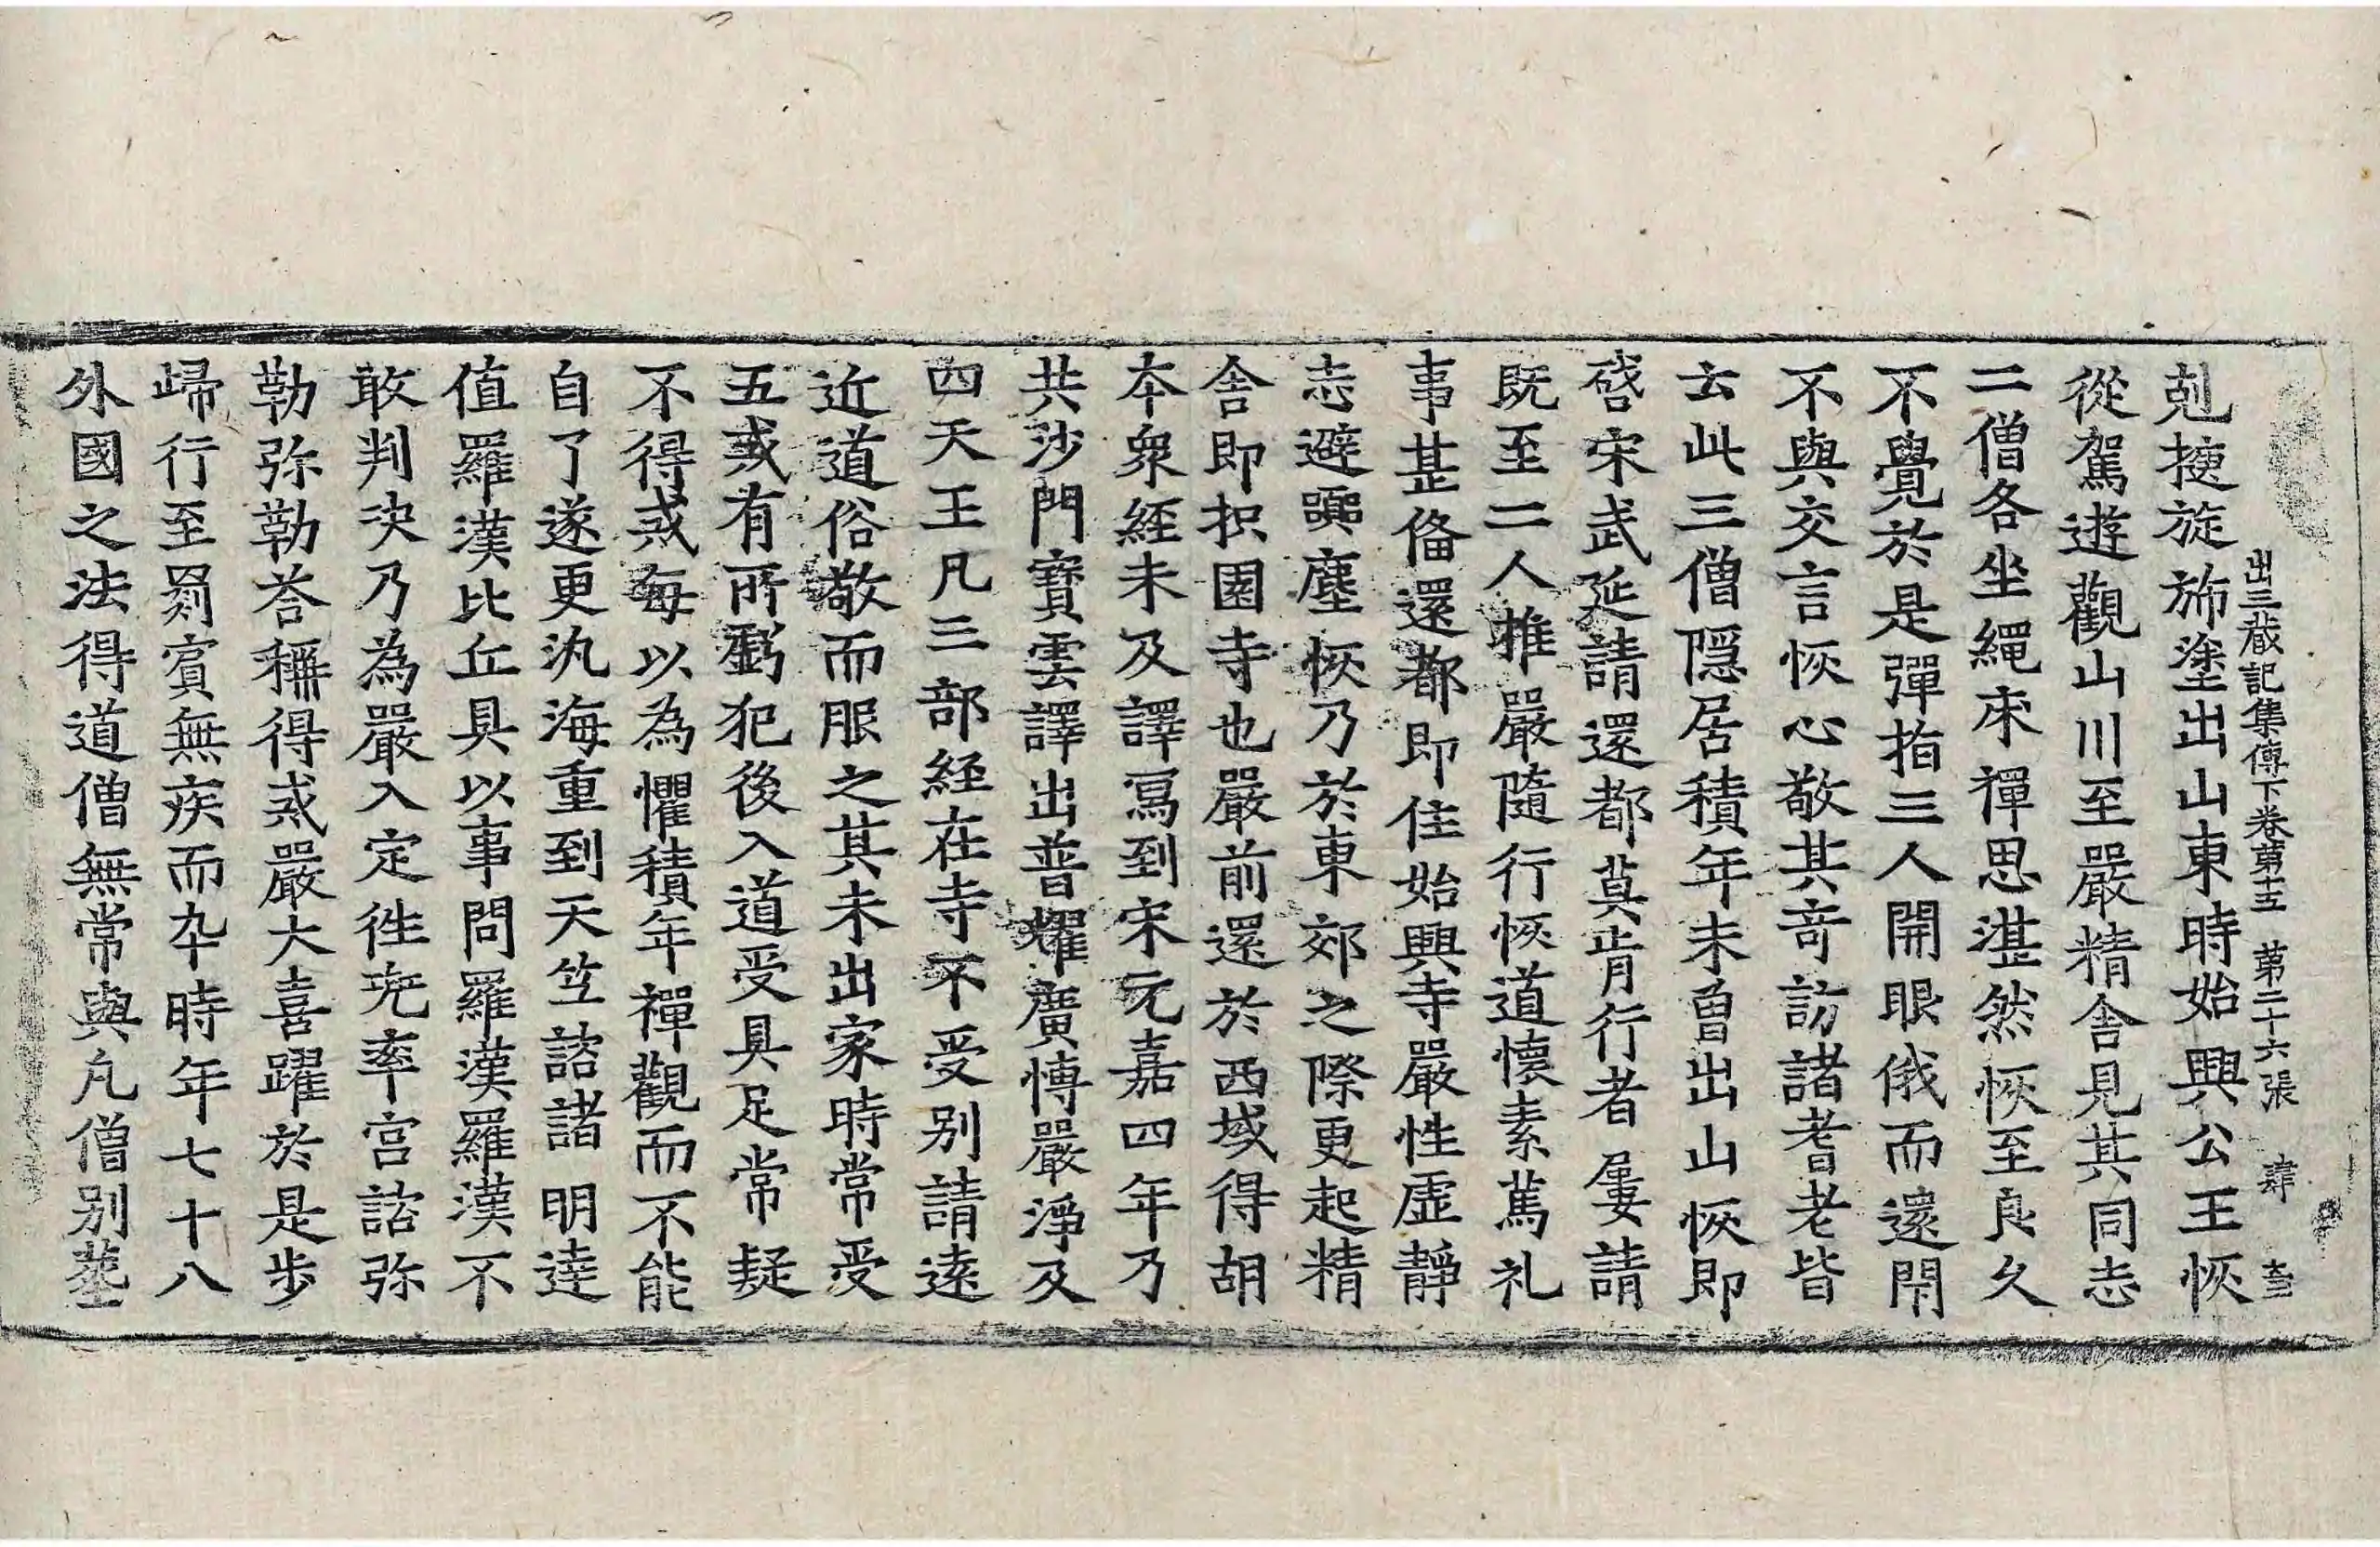 出三蔵記集傳下卷第十五　第二十六張　肆
剋捷旋斾塗出山東時始興公王恢
從駕遊觀山川至嚴精舍見其同志
二僧各坐繩床禪思湛然恢至良久
不覺於是彈指三人開眼俄而還閇
不與交言恢心敬其奇訪諸耆老皆
云此三僧隠居積年未曽出山恢即
啓宋武延請還都莫肯行者屢請
既至二人推嚴隨行恢道懷素篤礼
事甚俻還都即住始興寺嚴性虛靜
志避嚻塵恢乃於東郊之際更起精
舍即枳園寺也嚴前還於西域得胡
本衆経未及譯寫到宋元嘉四年乃
共沙門寶雲譯出普耀廣愽嚴淨及
四天王凡三部経在寺不受別請逺
近道俗敬而服之其未出家時常受
五戒有所虧犯後入道受具足常疑
不得戒每以為懼積年禪觀而不能
自了遂更汎海重到天竺諮諸明達
值羅漢比丘具以事問羅漢羅漢不
敢判決乃為嚴入定徃兜率宮諮弥
勒弥勒荅稱得戒嚴大喜躍於是步
歸行至罽賓無疾而卒時年七十八
外國之法得道僧無常與凡僧別葬